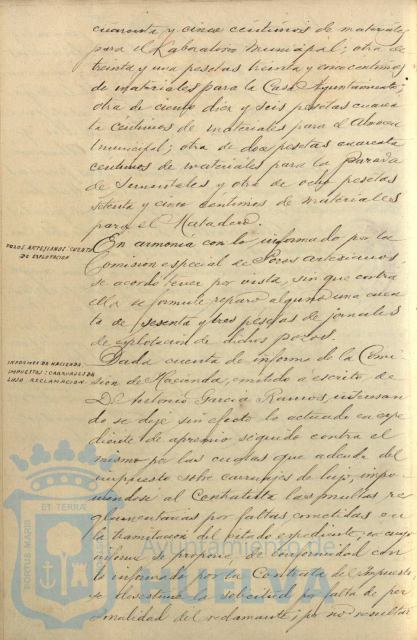 cuarenta y cinco centimos de materiales
para el Laboratorio municipal; otra de
treinta y una pesetas treinta y cinco centimos
de materiales para la Casa Ayuntamiento;
otra de ciento diez y seis pesetas cuaren
ta centimos de materiales para el Almacen
municipal; otra de doce pesetas cuarenta
centimos de materiales para la Parada
de Sementales y otra de ocho pesetas
setenta y cinco centimos de materiales
para el Matadero.
POZOS ARTESIANOS: CUENTA
DE EXPLOTACION
En armonia con lo informado por la
Comision especial de Pozos artesianos,
se acordó tener por vista, sin que contra
ella se formule reparo alguno una cuen
ta de sesenta y tres pesetas de jornales
de explotacion de dichos pozos.
INFORMES DE HACIENDA.
IMPUESTOS: CARRUAJES DE
LUJO RECLAMACION
Dada cuenta de informe de la Comi
sion de Hacienda, emitido á escrito de
D. Antonio Garcia Ramos, interesan
do se deje sin efecto lo actuado en expe
diente de apremio seguido contra el
mismo por las cuotas que adeuda del
impuesto sobre carruajes de lujo, impo
niendose al Contratista las multas re
glamentarias por faltas cometidas en
la tramitacion del citado expediente, en cuyo
informe se propone de conformidad con
lo informado por la Contrata del Impuesto
se desestime la solicitud por falta de per
sonalidad del reclamante; por no resultar
PORTUS MARIS ET TERRÆ
Ayuntamiento de
HUELVA